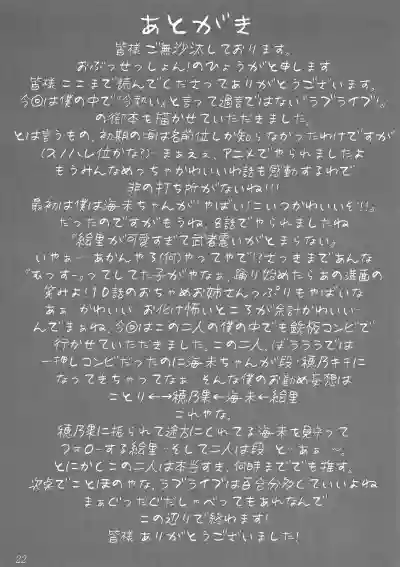 あとがき
皆様 ご無沙汰しております。
おぶっせっしょん！のひょうがと申します
皆様 ここまで読んでくださってありがとうございます。
今回は僕の中で『今熱い』と言って過言ではない『ラブライブ！』
の術本を描かせていただきました。
とは言うもの、初期の頃は名前位しか知らなかったわけですが
(スノハレ位かな？)… まぁえぇ、アニメでやられましたよ
もうみんなめっちゃかわいいわ話も感動するわで
非の打ち所がないね！！！
最初は僕は海未ちゃんが『やばい！こいつかわいいぞ！！』
だったのですがもうね、8話でやられましたね
『絵里が可愛すぎて武者震いがとまらない。』
いやぁ…あかんやろ(何)やってやで！？さっきまであんな
『むっすー』ってしてた子がやなぁ、踊り始めたらあの満面の
笑みよ！10話のおちゃめお姉さんっぷりもやばいな
あぁ かわいい お化け怖いところが余計かわいい…
んでまぁね、今回はこの二人の僕の中でも鉄板コンビで
行かせていただきました。この二人、ぱラララでは
一押しコンビだったのに海未ちゃんが段々穂乃キチに
なってきちゃってなぁ そんな僕のお勧め妄想は
ことり←→穂乃果←海未←絵里
これやな。
穂乃果に振られて途方にくれてる海未を見守って
フォローする絵里…そして二人は段々と…あぁ〜。
とにかくこの二人は本当すき、何時まででも推す。
次案でことほのやな、ラブライブは百合分多くていいよね
まぁぐったぐだしゃべってもあれなんで
この辺りで終わります！
皆様 ありがとうございました！
22